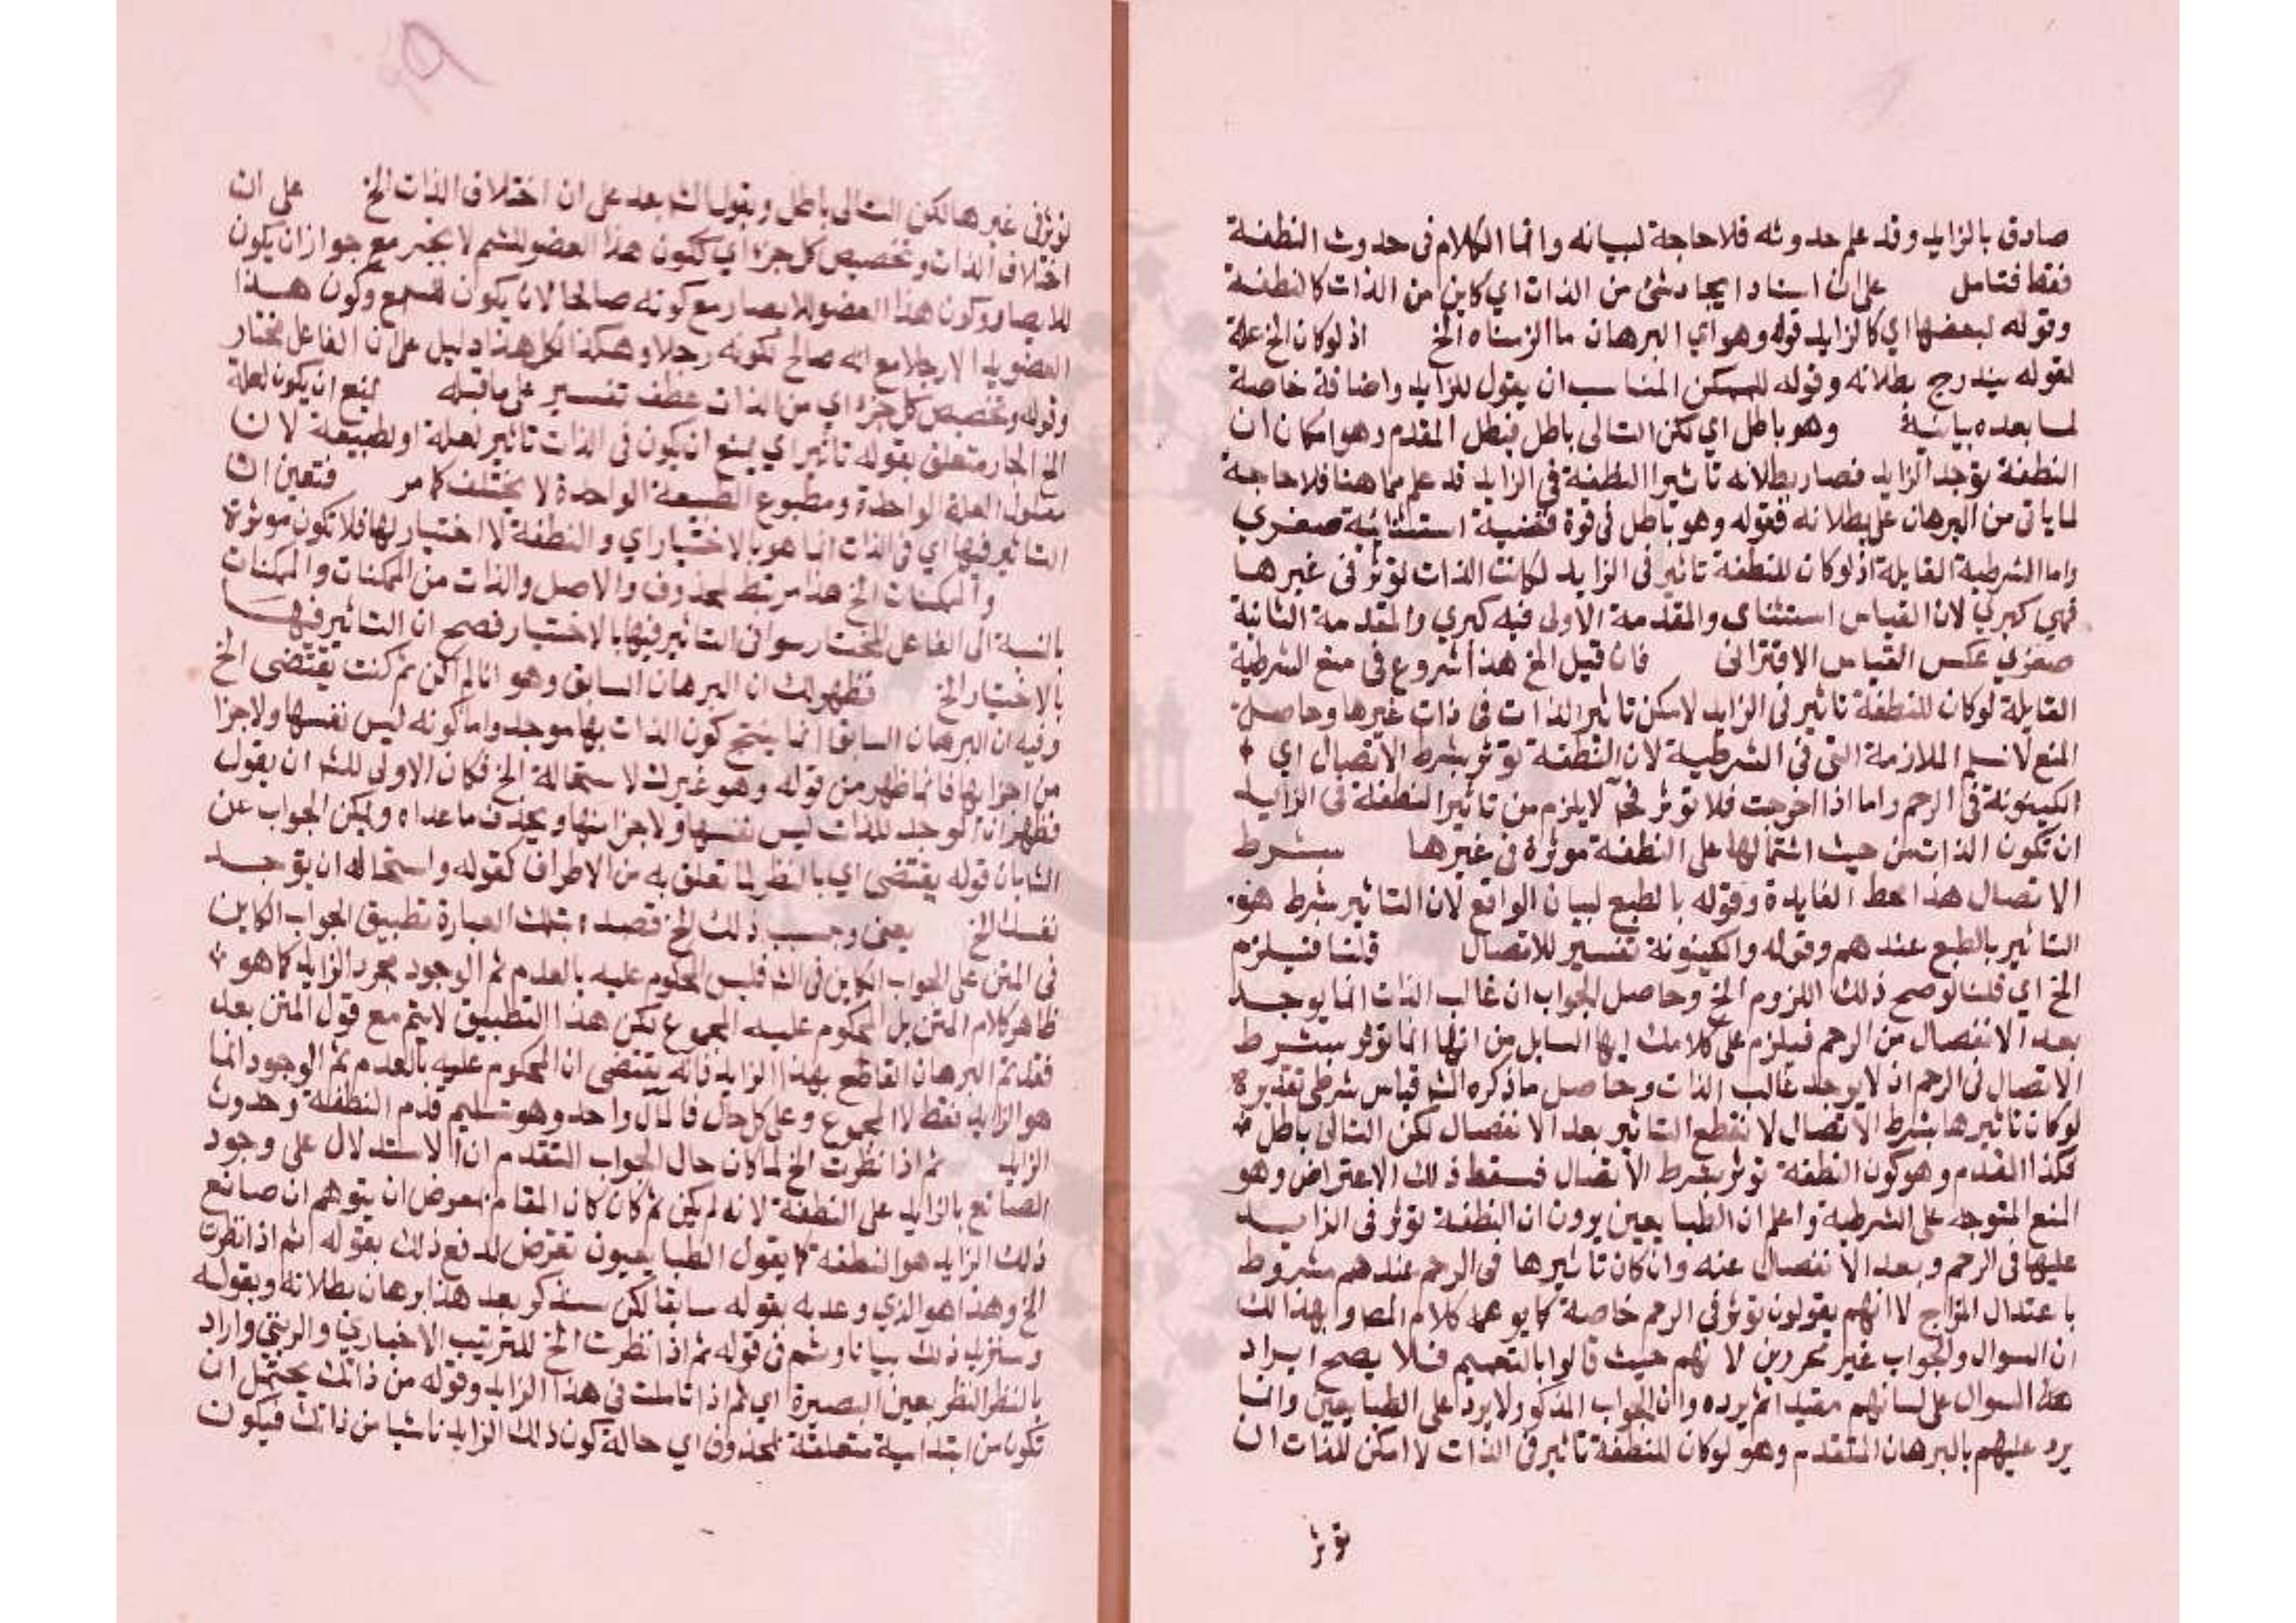 صادق بالزايد وقد علم حدوثه فلا حاجة لبيانه وانما الكلام فى حدوث النطفة
فقط فتامل على ان اسناد ايجاد شئ من الذات اي كاين من الذات كالنطفة
وقوله لبعضها اي كالزايد قوله وهو اي البرهان ما الزمناه الخ اذ لو كان الخ علة
لقوله يندرج بطلانه وقوله للممكن المناسب ان يقول للزايد واضافة خاصة
لما بعده بيانية وهو باطل اي لكن التالى باطل فبطل المقدم وهو امكان ان
النطفة توجد الزايد فصار بطلانه تاثير النطفة في الزايد قد علم مما هنا فلا حاجة
لما ياتى من البرهان على بطلانه فقوله وهو باطل فى قوة قضية استثنائية صغري
واما الشرطية القايلة اذ لو كان للنطفة تاثير فى الزايد لكانت الذات تؤثر فى غيرها
فهي كبري لان القياس استثناى والمقدمة الاولى فيه كبري والمقدمة الثانية
صغري عكس القياس الاقترانى فان قيل الخ هذا شروع فى منع الشرطية
القايلة لو كان للنطفة تاثير فى الزايد لامكن تاثير الذات فى ذات غيرها وحاصل
المنع لا نسلم الملازمة التى فى الشرطية لان النطفة توثر بشرط الاتصال اي
الكينونة فى الرحم واما اذا خرجت فلا توثر فح لا يلزم من تاثير النطفة فى الزايد
ان تكون الذات من حيث اشتمالها على النطفة موثرة فى غيرها بشرط
الاتصال هذا محط الفايدة وقوله بالطبع لبيان الواقع لان التاثير بشرط هو
التاثير بالطبع عندهم وقوله والكينونة تفسير للاتصال قلنا فيلزم
الخ اي قلنا لو صح ذلك اللزوم الخ وحاصل الجواب ان غالب الذات انما يوجد
بعد الانفصال من الرحم فيلزم على كلامك ايها السايل من انها انما توثر بشرط
الاتصال فى الرحم ان لا يوجد غالب الذات وحاصل ما ذكره الش قياس شرطى تقديره
لو كان تاثيرها بشرط الاتصال لانقطع التاثير بعد الانفصال لكن التالى باطل
فكذا المقدم وهو كون النطفة توثر بشرط الاتصال فسقط ذلك الاعتراض وهو
المنع المتوجه على الشرطية واعلم ان الطبايعين يرون ان النطفة توثر فى الزايد
عليها فى الرحم وبعد الانفصال عنه وان كان تاثيرها فى الرحم عندهم مشروط
باعتدال المزاج لا انهم يقولون توثر فى الرحم خاصة كما يوهمه كلام المص وبهذا لك
ان السوال والجواب غير محررين لانهم حيث قالوا بالتعميم فلا يصح ايراد
هذا السوال على لسانهم مقيدا ثم يرده وان الجواب المذكور لا يرد على الطبايعين وانما
يرد عليهم بالبرهان المتقدم وهو لو كان للنطفة تاثير فى الذات لامكن للذات ان
توثر
توثر فى غيرها لكن التالى باطل وبقول الش بعد على ان اختلاف الذات الخ على ان
اختلاف الذات وتخصيص كل جزء اي ككون هذا العضو للشم لا بخبر مع جواز ان يكون
للابصار وكون هذا العضو للابصار مع كونه صالحا لان يكون للسمع وكون هذا
العضو يدا لا رجلا مع انه صالح لكونه رجلا وهكذا كل هذا دليل على ان الفاعل مختار
وقوله وتخصيص كل جزء اي من الذات عطف تفسير على ما قبله يمنع ان يكون لعلة
الخ الجار متعلق بقوله تاثير اي يمنع ان يكون فى الذات تاثير لعلة او لطبيعة لان
معلول العلة الواحدة ومطبوع الطبيعة الواحدة لا يختلف كما مر فتعين ان
التاثير فيها اي فى الذات انما هو بالاختيار اي والنطفة لا اختيار لها فلا تكون موثرة
والممكنات الخ هذا مرتبط بمحذوف والاصل والذات من الممكنات والممكنات
بالنسبة الى الفاعل المختار سوا فى التاثير فيها بالاختيار فصح ان التاثير فيها
بالاختيار الخ فظهر لك ان البرهان السابق وهو انا لم اكن ثم كنت يقتضى الخ
وفيه ان البرهان السابق انما ينتج كون الذات بها موجد واما كونه ليس نفسها ولا جزا
من اجزايها فانما ظهر من قوله وهو غيرك لاستحالة الخ فكان الاولى للش ان يقول
فظهر ان الموجد للذات ليس نفسها ولا جزا منها ويحذف ما عداه ويمكن الجواب عن
الش بان قوله يقتضى اي بالنظر لما تعلق به من الاطراف كقوله واستحاله ان توجد
نفسك الخ يعنى وحسب ذلك الخ قصد بتلك العبارة تطبيق الجواب الكاين
فى المتن على الجواب الكاين فى الش فليس المحكوم عليه بالعدم ثم الوجود مجرد الزايد كما هو
ظاهر كلام المتن بل المحكوم عليه المجموع لكن هذا التطبيق لا يتم مع قول المتن بعد
فقد تم البرهان القاطع بهذا الزايد فانه يقتضى ان المحكوم عليه بالعدم ثم الوجود انما
هو الزايد فقط لا المجموع وعلى كل حال فالمآل واحد وهو تسليم قدم النطفة وحدوث
الزايد ثم اذا نظرت الخ لما كان حال الجواب المتقدم ان الاستدلال على وجود
الصانع بالزايد على النطفة لانه لم يكن ثم كان كان المقام معرض ان يتوهم ان صانع
ذلك الزايد هو النطفة كما يقول الطبايعيون تعرض لدفع ذلك بقوله ثم اذا نظرت
الخ وهذا هو الذي وعد به بقوله سابقا لكن سنذكر بعد هذا برهان بطلانه وبقوله
وسنزيد ذلك بيانا وثم فى قوله ثم اذا نظرت الخ للترتيب الاخباري والرتبي واراد
بالنظر النظر بعين البصيرة اي ثم اذا تاملت فى هذا الزايد وقوله من ذاتك يحتمل ان
تكون من ابتدايية متعلقة بمحذوف اي حالة كون ذلك الزايد ناشيا من ذاتك فيكون